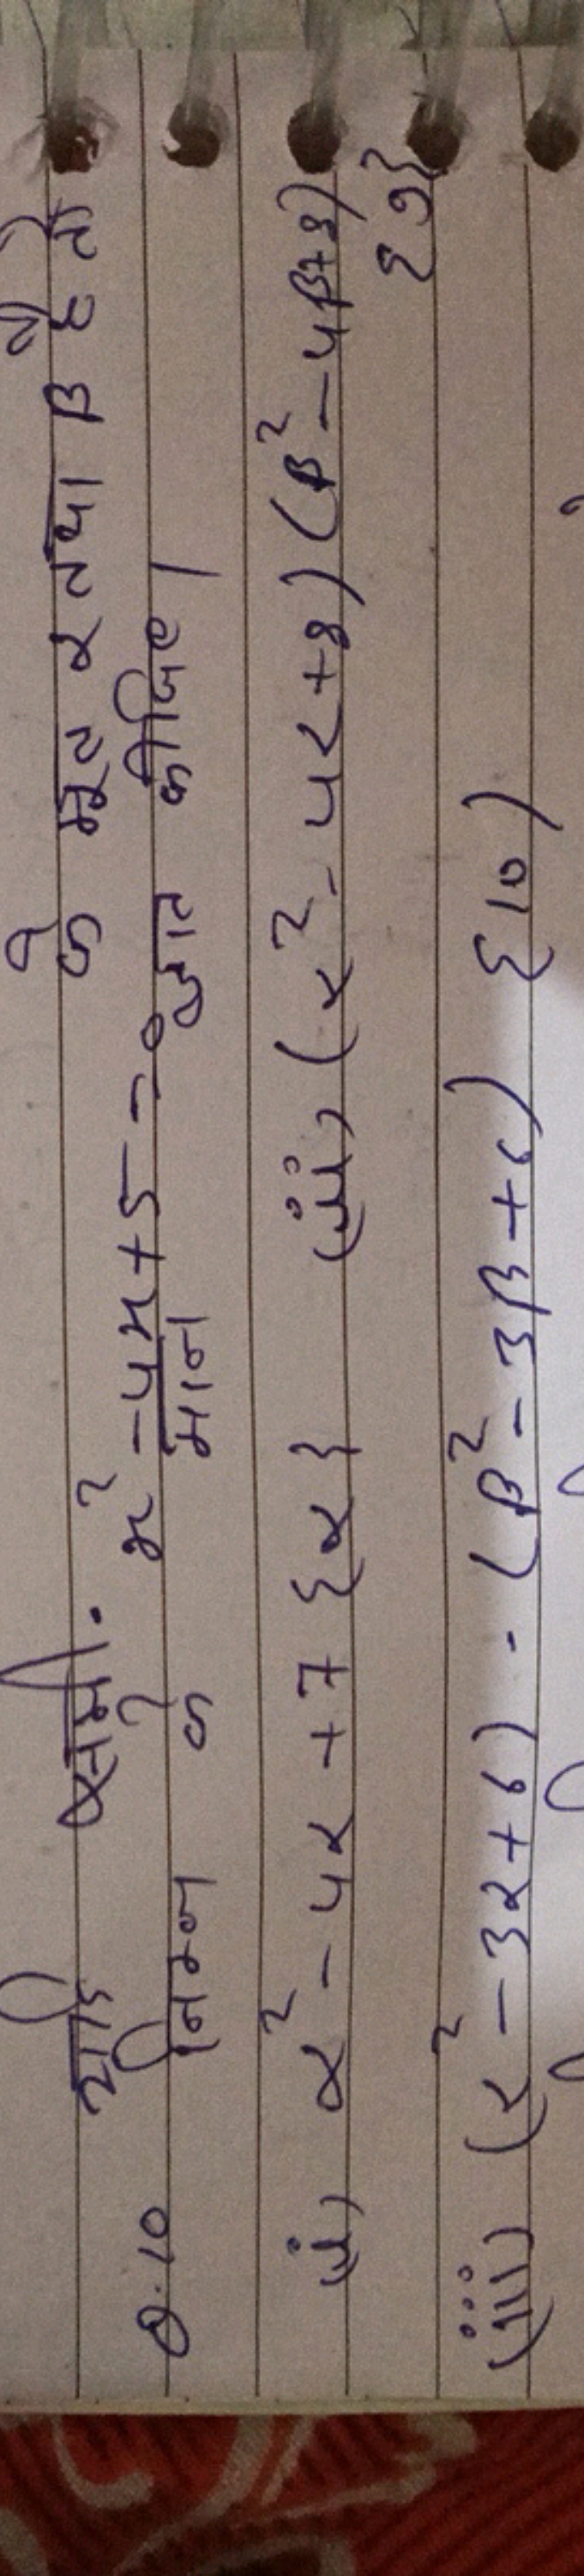 Q.10 यदि समी. x² - 4x + 5 = 0 के मूल α तथा β है तो
निम्न के मान ज्ञात कीजिए।
(i) α² - 4α + 7 {2} (ii) (α² - 4α + 8) (β² - 4β + 8)
{9}
(iii) (α² - 3α + 6) · (β² - 3β + 6) {10}